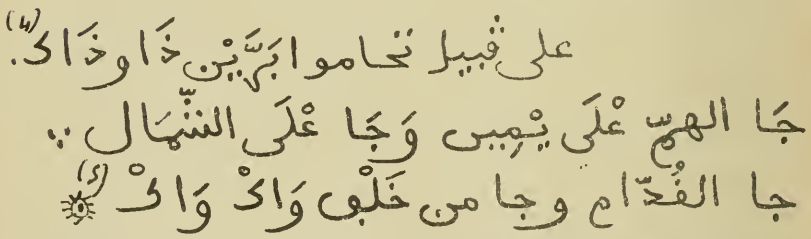 على ڧبيل تحاموا بَرَّيْن ذَا وذَاكْ. (4)
جَا الهمّ عْلَى يْمِين وَجَا عْلَى الشّْمَال ..
جا الڧُدّام وجا من خَلْف وَاكْ وَاكْ (5)